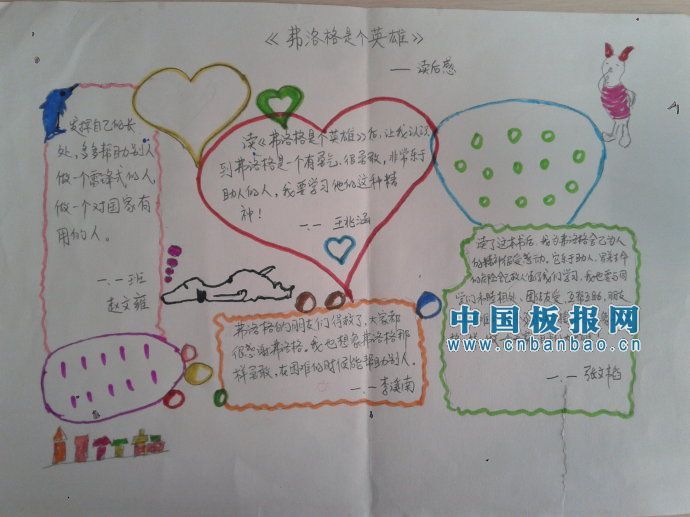 《弗洛格是个英雄》
——读后感
发挥自己的长
处，多多帮助别人
做一个雷锋式的人，
做一个对国家有
用的人。
一.一班
赵文雍
读《弗洛格是个英雄》后，让我认识
到弗洛格是一个有勇气、很勇敢，非常乐于
助人的人，我要学习他的这种精
神！
一.一 王兆涵
弗洛格的朋友们得救了，大家都
很感谢弗洛格。我也想象弗洛格那
样勇敢，在困难的时候能帮助别人。
一.一 李溪南
读了这本书后，我为弗洛格舍己为人
的精神很受感动。它乐于助人，
我也要与同
学们和睦相处、团结友爱、互帮互助，
中国板报网
www.cnbanbao.cn
一.一 张文韬